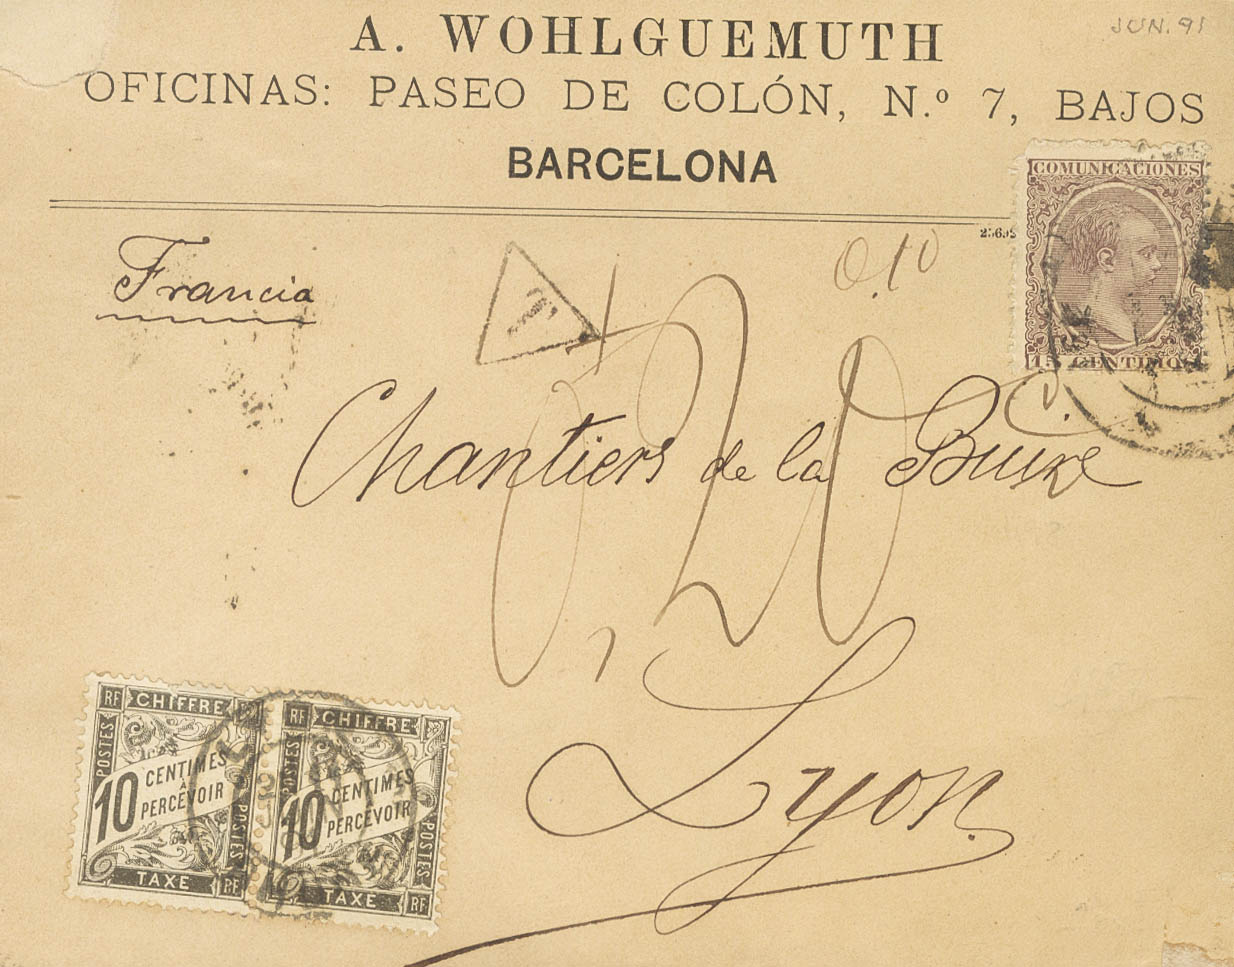 JUN. 91
A. WOHLGUEMUTH
OFICINAS: PASEO DE COLÓN, N.º 7, BAJOS
BARCELONA
COMUNICACIONES
15 CENTIMOS
Francia
T
0.10
0,20
Chantiers de la Buire
Lyon
RF CHIFFRE
POSTES
10 CENTIMES
À
PERCEVOIR
POSTES
TAXE RF
RF CHIFFRE
POSTES
10 CENTIMES
À
PERCEVOIR
POSTES
TAXE RF